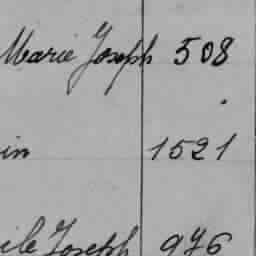 Marie Joseph 508
in 1521
ile Joseph 976